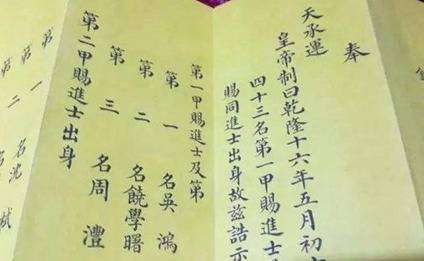 奉
天承運
皇帝制曰乾隆十六年五月初
四十三名第一甲賜進士
賜同進士出身故茲誥示
第一甲賜進士及第
第一名吳鴻
第二名饒學曙
第三名周灃
第二甲賜進士出身
第一名沈栻
第二名
第